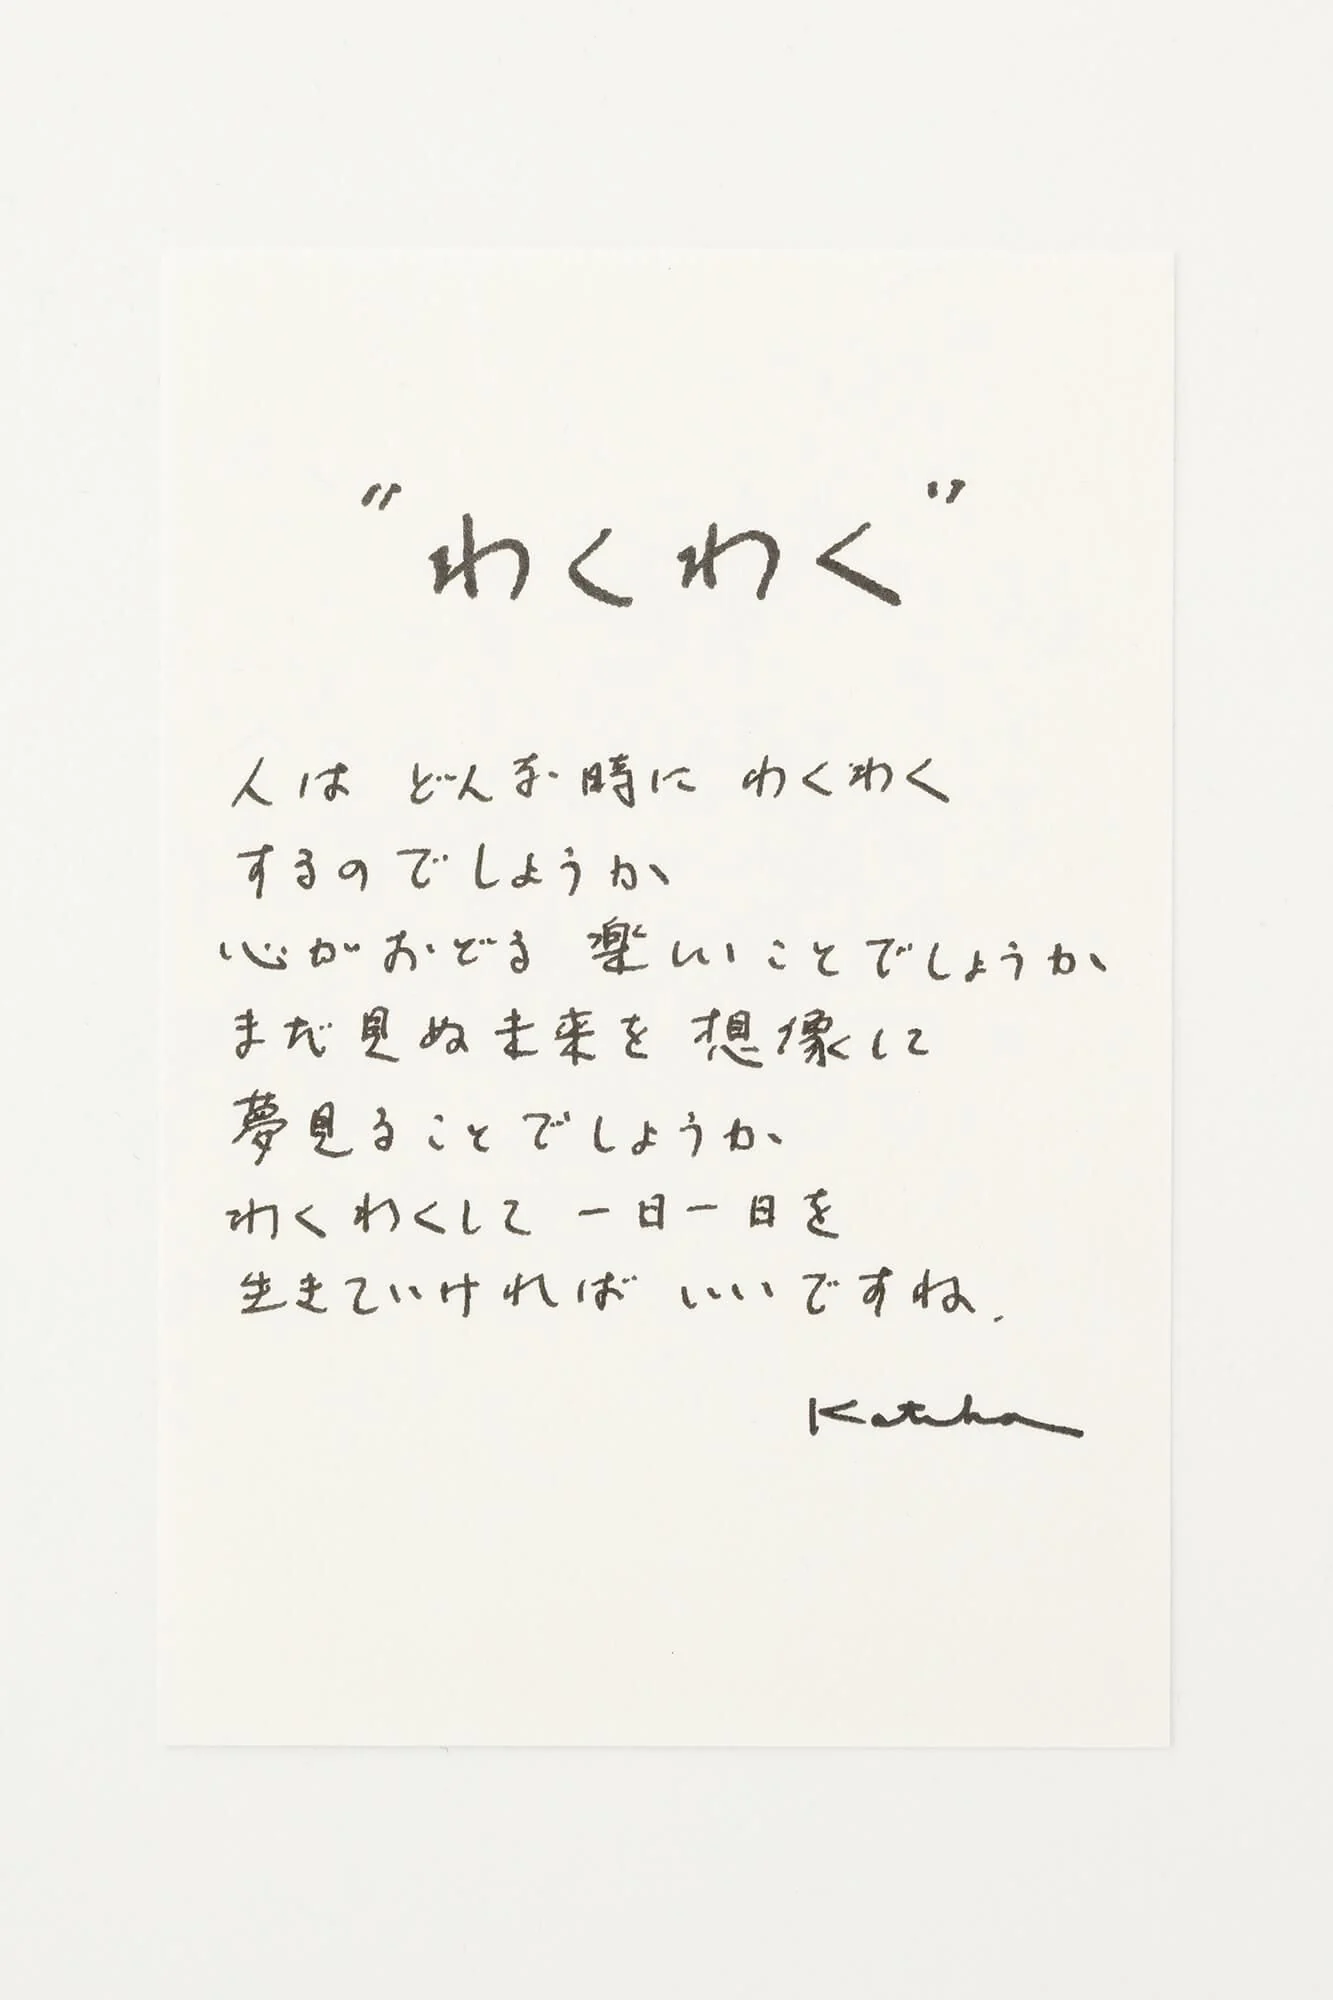 "わくわく"
人は どんな時に わくわく
するのでしょうか
心がおどる 楽しいことでしょうか
まだ見ぬ未来を 想像して
夢見ることでしょうか
わくわくして 一日一日を
生きていければ いいですね.